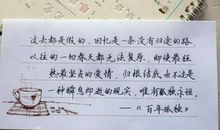 过去都是假的，回忆是一条没有归途的路，
以往的一切春天都无法复原，即使最狂
热最坚贞的爱情，归根结底也不过是
一种瞬息即逝的现实，唯有孤独永恒。
——《百年孤独》